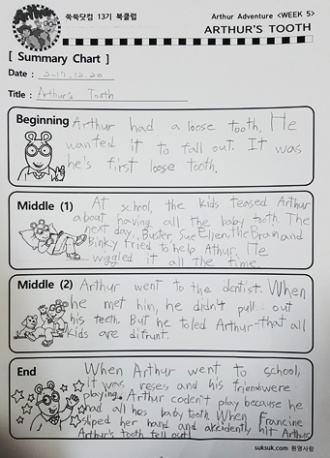 Arthur
쑥쑥닷컴 13기 북클럽
Arthur Adventure <WEEK 5>
ARTHUR'S TOOTH
[ Summary Chart ]
Date : 2017.12.20
Title : Arthur's Tooth
Beginning
Arthur had a loose tooth. He
wanted it to fall out. It was
he's first loose tooth.
Middle (1)
At school, the kids teased Arthur
about having all the baby teeth. The
next day, Buster Sue Ellen, the Brain and
Binky tried to help Athur. He
wiggled it all the time.
Middle (2)
Arthur went to the dentist. When
he met him, he didn't pull out
his teeth. But he toled Arthur that all
kids are difrunt.
End
When Arthur went to school,
it was reses and his friends were
playing. Arthur coden't play because he
had all hes baby teeth. When Francine
her hand and accidently hit Arthur
Arthur's tooth fell out!
suksuk.com 원영사랑